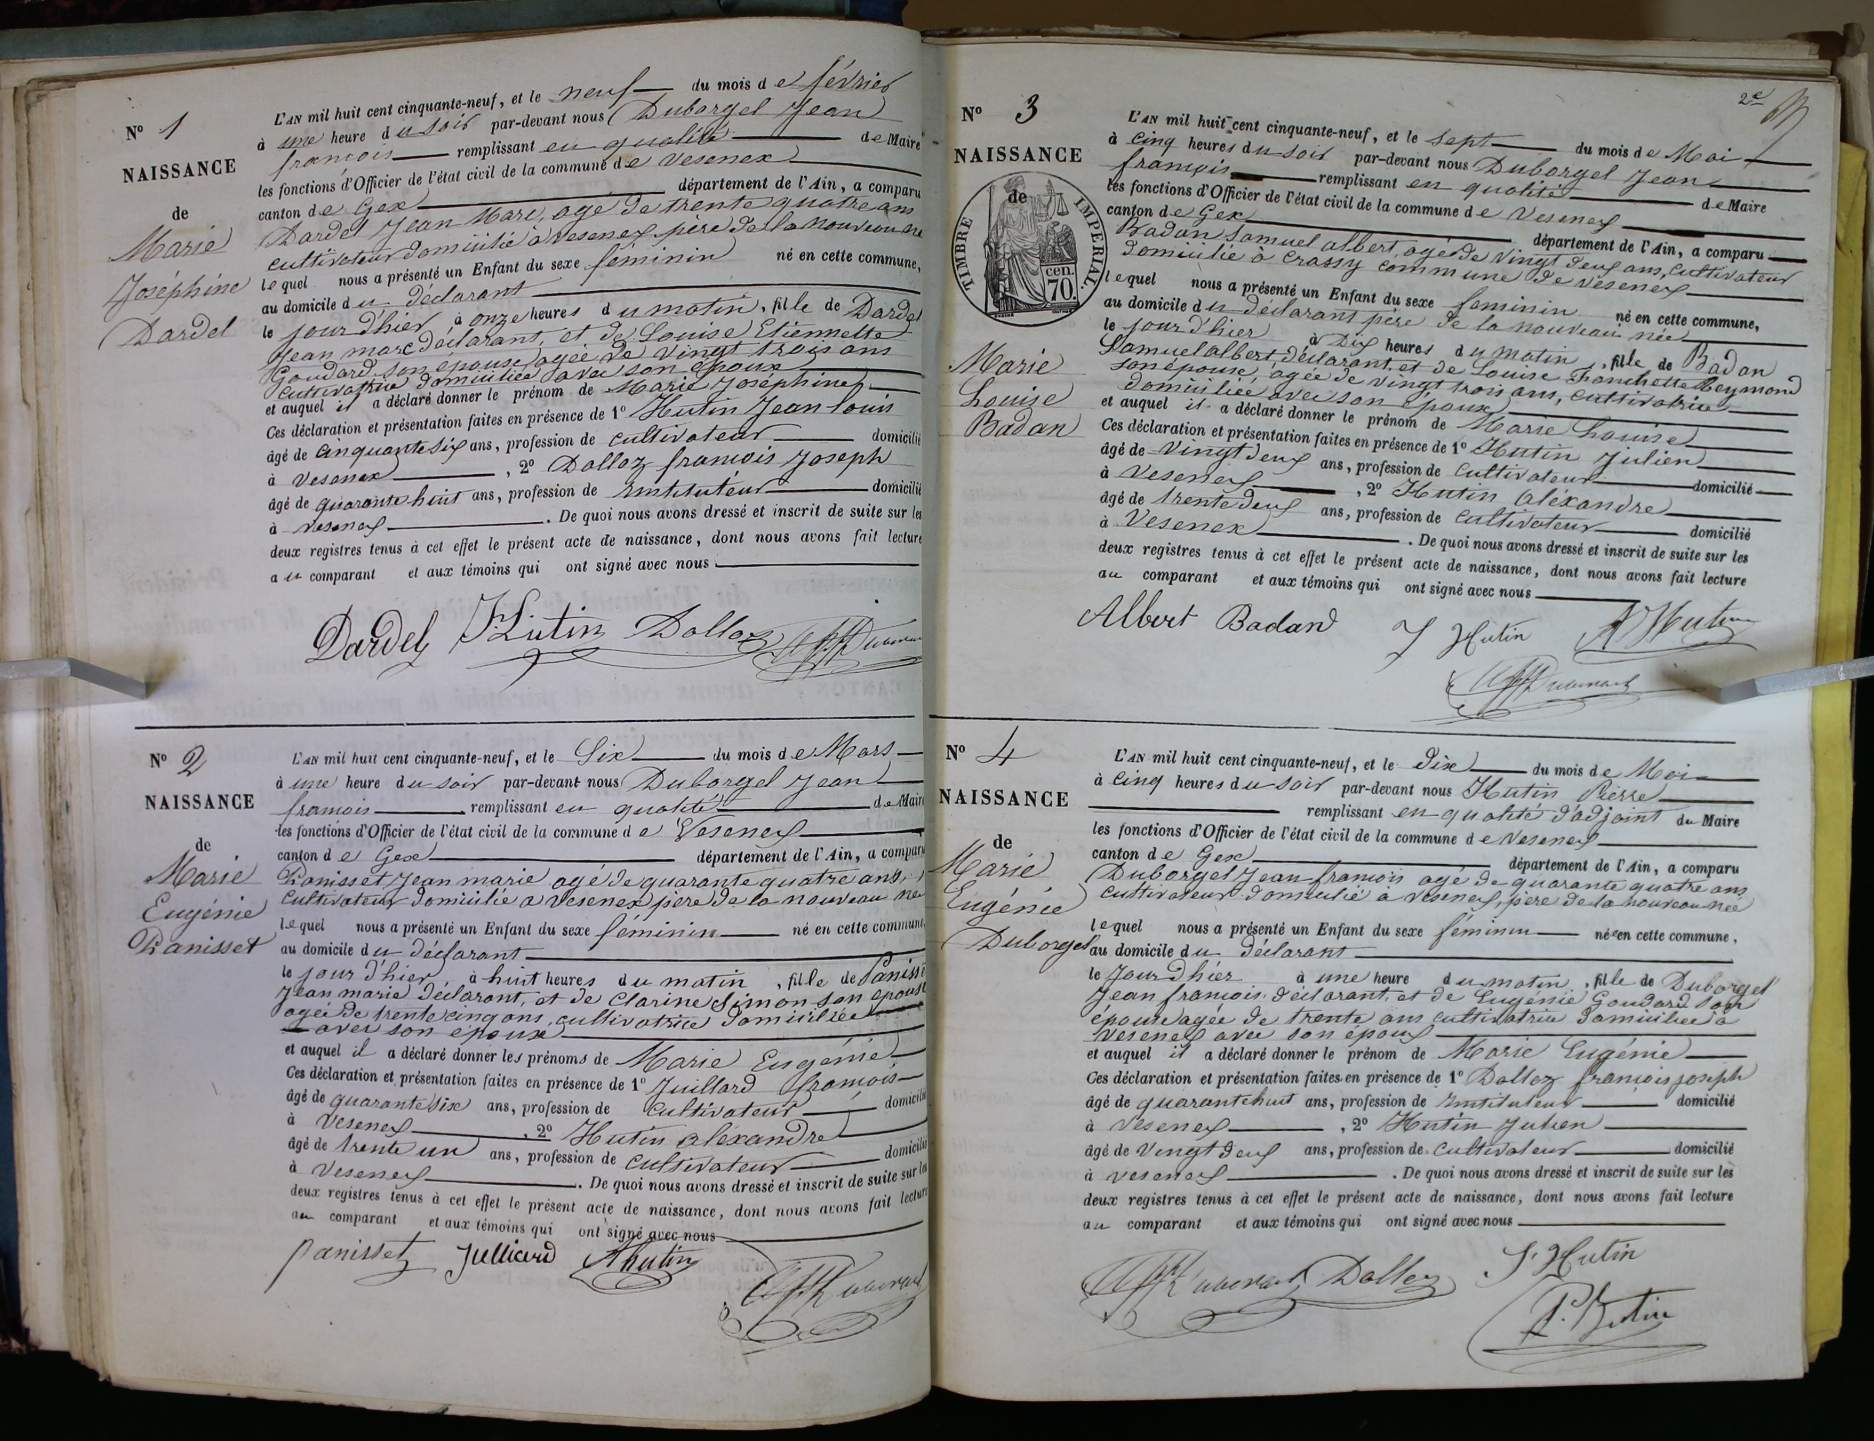 N° 1
NAISSANCE
de
Marie
Joséphine
Dardel
L'AN mil huit cent cinquante-neuf, et le neuf du mois de février
à une heure du soir par-devant nous Duborgel Jean
françois remplissant en qualité de Maire
les fonctions d'Officier de l'état civil de la commune de Vesenex
canton de Gex département de l'Ain, a comparu
Dardel Jean Marc, agé de trente quatre ans
cultivateur domicilié à Vesenex père de la nouveau née
lequel nous a présenté un Enfant du sexe féminin né en cette commune,
au domicile du déclarant
le jour d'hier à onze heures du matin, fille de Dardel
Jean marc déclarant, et de Louise Etiennette
Goudard son épouse agée de vingt trois ans
cultivatrice domiciliée avec son époux
et auquel il a déclaré donner le prénom de Marie Joséphine
Ces déclaration et présentation faites en présence de 1° Hutin Jean louis
âgé de cinquante six ans, profession de cultivateur domicilié
à Vesenex, 2° Dolloz françois Joseph
âgé de quarante huit ans, profession de instituteur domicilié
à Vesenex. De quoi nous avons dressé et inscrit de suite sur les
deux registres tenus à cet effet le présent acte de naissance, dont nous avons fait lecture
au comparant et aux témoins qui ont signé avec nous
Dardel Hutin Dolloz
N° 2
NAISSANCE
de
Marie
Eugénie
Panisset
L'AN mil huit cent cinquante-neuf, et le Six du mois de Mars
à une heure du soir par-devant nous Duborgel Jean
françois remplissant en qualité de Maire
les fonctions d'Officier de l'état civil de la commune de Vesenex
canton de Gex département de l'Ain, a comparu
Panisset Jean marie agé de quarante quatre ans,
cultivateur domicilié a Vesenex père de la nouveau née
lequel nous a présenté un Enfant du sexe féminin né en cette commune,
au domicile du déclarant
le jour d'hier à huit heures du matin, fille de Panisset
Jean marie déclarant, et de Clarine Simon son épouse
agée de trente cinq ans, cultivatrice domiciliée
avec son époux
et auquel il a déclaré donner les prénoms de Marie Eugénie
Ces déclaration et présentation faites en présence de 1° Juillard françois
âgé de quarante six ans, profession de cultivateur domicilié
à Vesenex, 2° Hutin aléxandre
âgé de trente un ans, profession de cultivateur domicilié
à Vesenex. De quoi nous avons dressé et inscrit de suite sur les
deux registres tenus à cet effet le présent acte de naissance, dont nous avons fait lecture
au comparant et aux témoins qui ont signé avec nous
Panisset Julliard A hutin
2e
N° 3
NAISSANCE
de
TIMBRE IMPERIAL
70 cen.
Marie
Louise
Badan
L'AN mil huit cent cinquante-neuf, et le sept du mois de Mai
à cinq heures du soir par-devant nous Duborgel Jean
françois remplissant en qualité de Maire
les fonctions d'Officier de l'état civil de la commune de Vesenex
canton de Gex département de l'Ain, a comparu
Badan Samuel albert, agé de vingt deux ans, cultivateur
domicilié à Crassy commune de Vesenex
lequel nous a présenté un Enfant du sexe feminin né en cette commune,
au domicile du déclarant père de la nouveau née
le jour d'hier à Dix heures du matin, fille de Badan
Samuel albert déclarant, et de Louise Franchette Reymond
son épouse, agée de vingt trois ans, cultivatrice
domiciliée avec son époux
et auquel il a déclaré donner le prénom de Marie Louise
Ces déclaration et présentation faites en présence de 1° Hutin Julien
âgé de vingt deux ans, profession de cultivateur domicilié
à Vesenex, 2° Hutin aléxandre
âgé de trente deux ans, profession de cultivateur domicilié
à Vesenex. De quoi nous avons dressé et inscrit de suite sur les
deux registres tenus à cet effet le présent acte de naissance, dont nous avons fait lecture
au comparant et aux témoins qui ont signé avec nous
Albert Badan J Hutin A Hutin
N° 4
NAISSANCE
de
Marie
Eugénie
Duborgel
L'AN mil huit cent cinquante-neuf, et le dix du mois de Mai
à cinq heures du soir par-devant nous Hutin Pierre
remplissant en qualité d'adjoint du Maire
les fonctions d'Officier de l'état civil de la commune de Vesenex
canton de Gex département de l'Ain, a comparu
Duborgel Jean francois agé de quarante quatre ans
cultivateur domicilié à Vesenex, père de la nouveau née
lequel nous a présenté un Enfant du sexe féminin né en cette commune,
au domicile du déclarant
le jour d'hier à une heure du matin, fille de Duborgel
Jean françois déclarant, et de Eugénie Goudard son
épouse agée de trente ans cultivatrice domiciliée à
Vesenex avec son époux
et auquel il a déclaré donner le prénom de Marie Eugénie
Ces déclaration et présentation faites en présence de 1° Dolloz françois joseph
âgé de quarante huit ans, profession de instituteur domicilié
à Vesenex, 2° Hutin Julien
âgé de vingt deux ans, profession de cultivateur domicilié
à Vesenex. De quoi nous avons dressé et inscrit de suite sur les
deux registres tenus à cet effet le présent acte de naissance, dont nous avons fait lecture
au comparant et aux témoins qui ont signé avec nous
Dolloz J. Hutin
P. Hutin